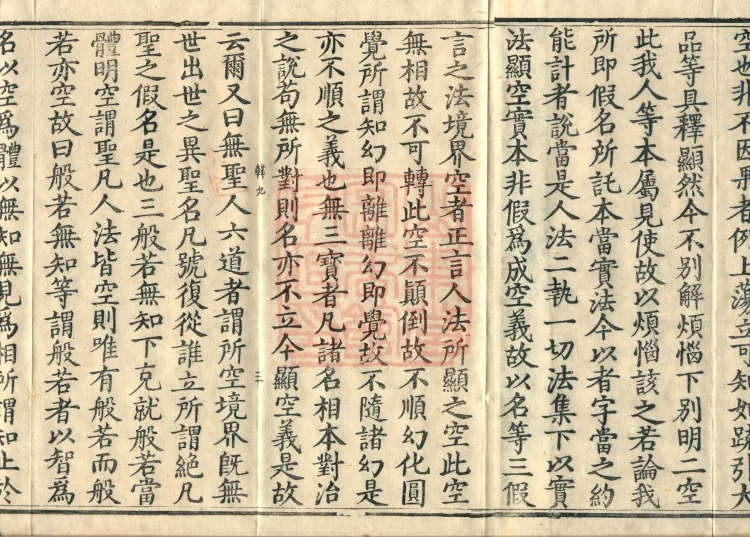 空也非不因果者例上蕩立可知如疏引大
品等具釋顯然今不別解煩惱下別明二空
此我人等本屬見使故以煩惱該之若論我
所即假名所託本當實法今以者字當之約
能計者說當是人法二執一切法集下以實
法顯空實本非假爲成空義故以名等三假
言之法境界空者正言人法所顯之空此空
無相故不可轉此空不顛倒故不順幻化圓
覺所謂知幻即離離幻即覺故不隨諸幻是
亦不順之義也無三寶者凡諸名相本對治
之說苟無所對則名亦不立今顯空義是故
韓九
三
云爾又曰無聖人六道者謂所空境界旣無
世出世之異聖名凡號復從誰立所謂絶凡
聖之假名是也三般若無知下克就般若當
體明空謂聖凡人法皆空則唯有般若而般
若亦空故曰般若無知等謂般若者以智爲
名以空爲體以無知無見爲相所謂知止於